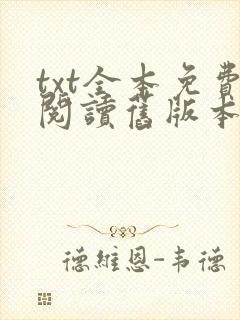 txt全本免費
閱讀舊版本
德維恩-韦德